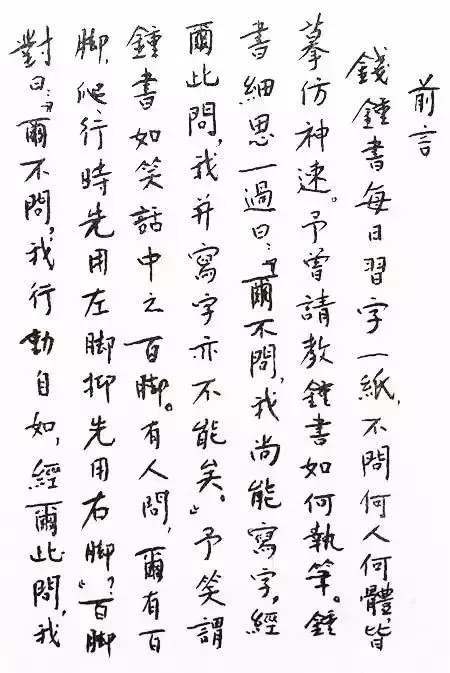 前言
錢鍾書每日習字一紙，不問何人何體，皆
摹仿神速。予曾請教鍾書如何執筆。鍾
書細思一過曰：“爾不問，我尚能寫字，經
爾此問，我并寫字亦不能矣。”予笑謂
鍾書如笑話中之百脚。有人問，爾有百
脚，爬行時先用左脚抑先用右脚”？百脚
對曰：“爾不問，我行動自如，經爾此問，我